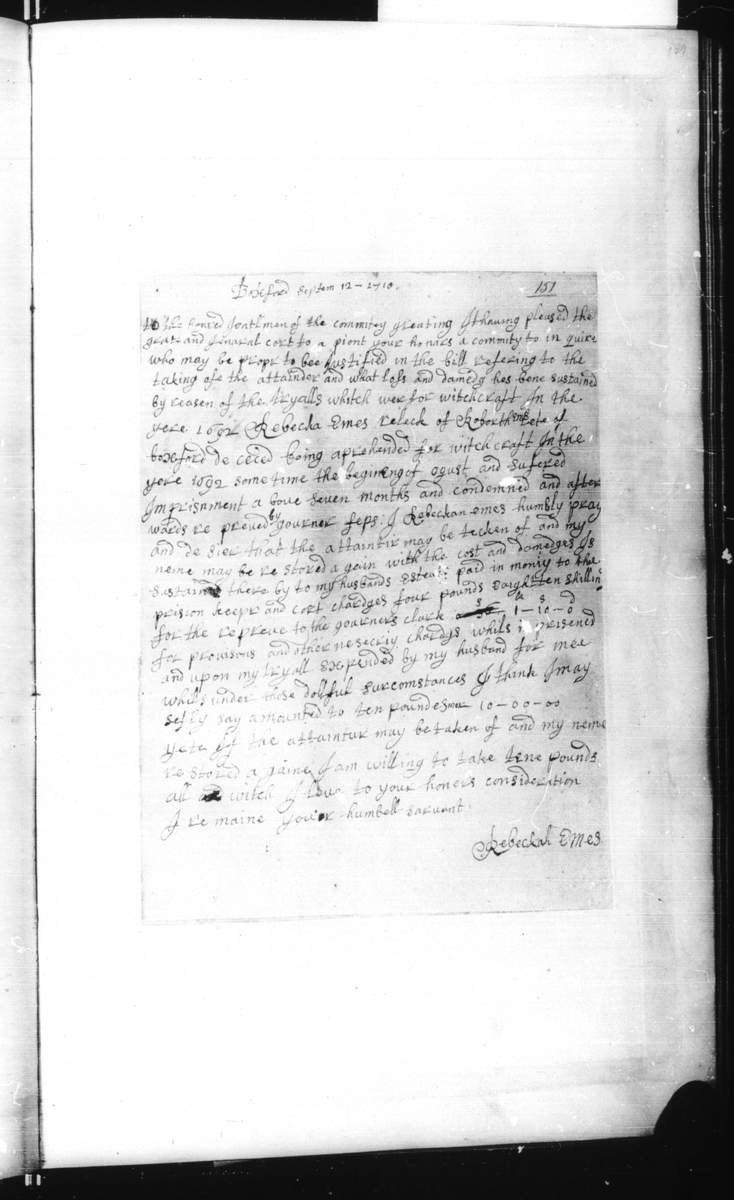 Boxford Septem 12 - 1710. 151
to the honred Jentlmen of the commitey greating It having pleased the
grate and Jinaral cort to a piont your honars a commity to in quire
who may be propr to bee Justified in the bill refering to the
taking ofe the attainder and what loss and damedg hes bene sustained
by reasen of the tryalls whitch wer for witchcraft In the
yere 1692 Rebecka Emes releck of Roborth Ems lete of
boxford de ceced being aprehended for witchcraft In the
yere 1692 some time the begining of ogust and sufered
Imprisnment a bove seven months and condemned and after
wards re preved by govrner feps: I Rebeckan emes humbly pray
and de sier that the attaintir may be tecken of and my
neme may be re stored a gain with the cost and damedges Is
sustained there by to my husbands Esteat: paid in moniy to the
prision keepr and cort chardges four pounds eaightten shillin
for the repreve to the governers clark 1-10-0
for provisons and other neseciriy chardgs whils imprisened
and upon my tryall Expended by my husband for mee
whills under those dollful surcomstances I think I may
sefly say amounted to ten pounds mor 10-00-00
yete if the attaintur may be taken of and my neme
re stored a gaine I am willing to take tene pounds
all witch I leve to your honers consideration
I re maine your humbell sarvant
Rebeckah Emes